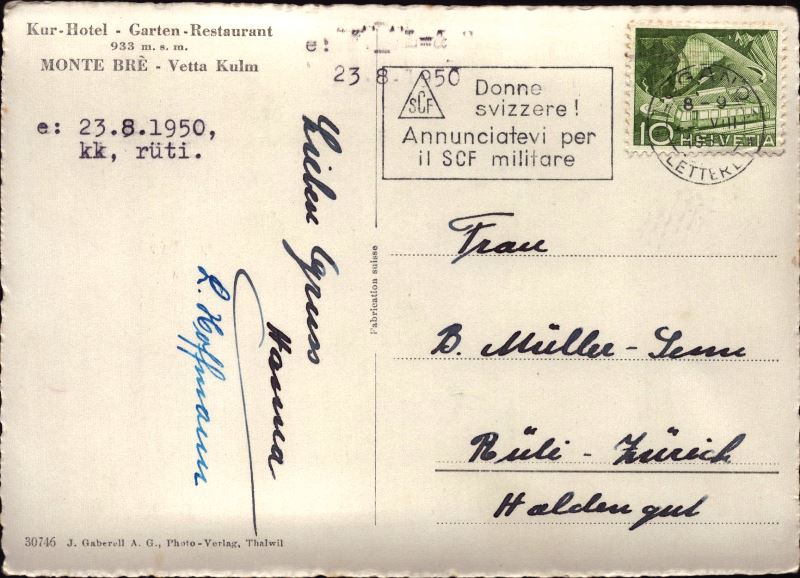 Kur-Hotel - Garten-Restaurant
933 m. s. m.
MONTE BRÈ - Vetta Kulm
e: 23.8.1950,
kk, rüti.
e:
23.8.1950
SCF
Donne
svizzere!
Annunciatevi per
il SCF militare
LUGANO
8-9
LETTERE
10 HELVETIA
Lieben Gruss
Hanna
L. Hoffmann
Fabrication suisse
Frau
B. Müller-Senn
Rüti - Zürich
Haldengut
30746 J. Gaberell A. G., Photo-Verlag, Thalwil